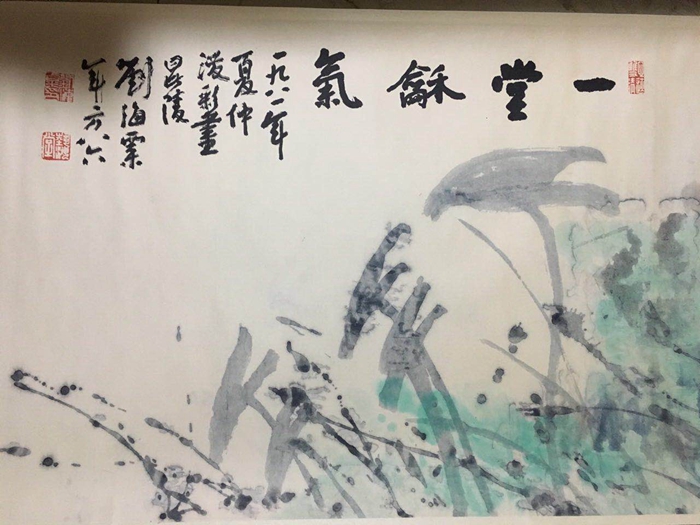 一堂龢氣
一九八一年
夏仲
潑彩畫
毘陵
劉海粟
年方八六